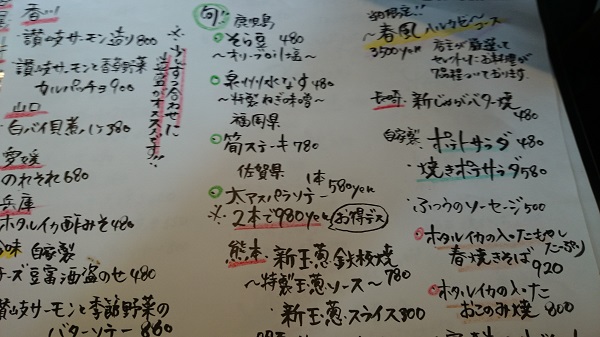 香川
讃岐サーモン造り 800
讃岐サーモンと季節野菜
カルパッチョ 900
山口
白バイ貝煮 380
愛媛
のれそれ 680
兵庫
ホタルイカ酢みそ 480
味 自家製
チーズ豆富酒盗のせ 480
讃岐サーモンと季節野菜の
バターソテー 860
旬!! 鹿児島
そら豆 480
～オリーブオイル塩～
泉州水なす 480
～特製ねぎ味噌～
福岡県
筍ステーキ 780
佐賀県
大アスパラソテー 1本 580yen
※ 2本で980yen お得デス
熊本 新玉葱鉄板焼
～特製玉葱ソース～ 780
新玉葱スライス 300
～春風ハルカゼ～
コース
3500yen
店主が厳選して
セレクトしたお料理が
7品程ついております。
長崎 新じゃがバター焼
480
自家製 ポテトサラダ 480
焼きポテサラダ 580
ふつうのソーセージ 500
ホタルイカの入ったもやし
たっぷり
春焼きそば 920
ホタルイカの入った
おこのみ焼 800